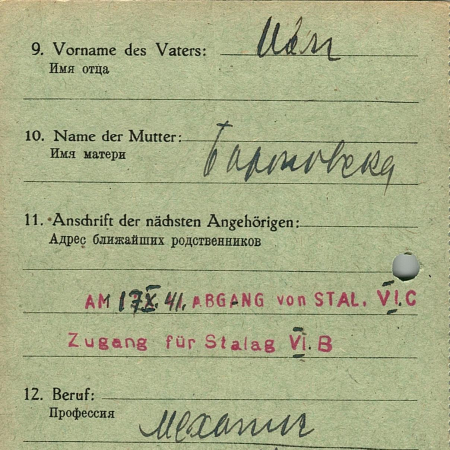 9. Vorname des Vaters:
Имя отца
10. Name der Mutter:
Имя матери
11. Anschrift der nächsten Angehörigen:
Адрес ближайших родственников
AM 17.X.41. ABGANG von STAL. VI.C
Zugang für Stalag VI.B
12. Beruf:
Профессия
механик